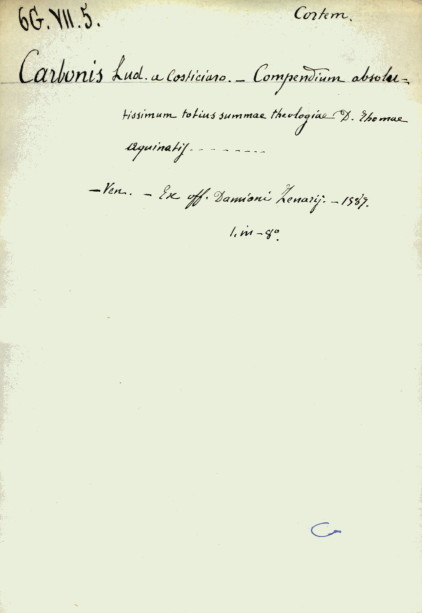 6G.VII.5.
Cortem.
Carbonis Lud. a Costiciaro. – Compendium absolu=
tissimum totius summae theologiae D. Thomae
Aquinatis - - - - - - - -
– Ven. – Ex off. Damiani Zenarij. – 1587.
1. in – 8º.